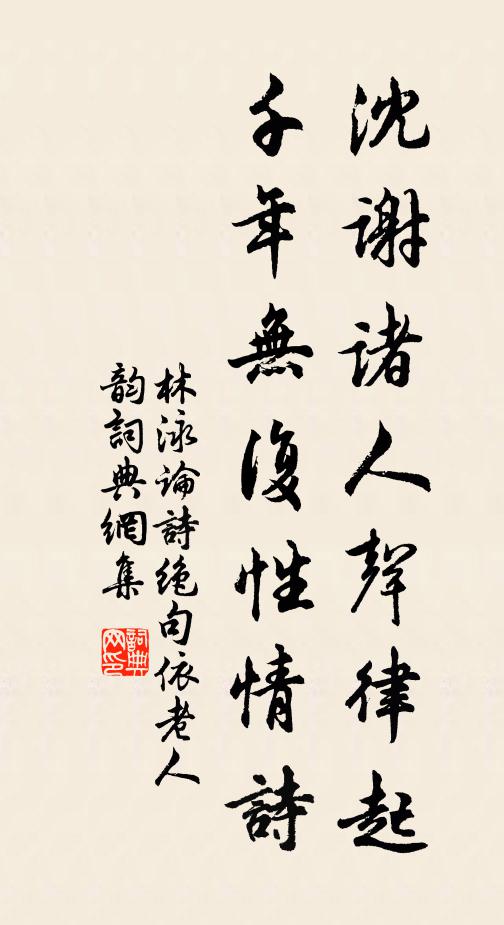 沈谢诸人聲律起
千年無復性情詩
林泳論詩絶句依老人
韵詞典網集
詞典网印